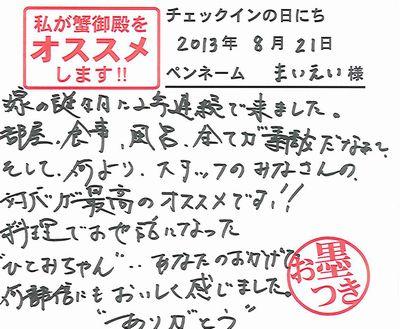 私が蟹御殿を
オススメ
します!!
チェックインの日にち
2013年 8月 21日
ペンネーム まいえい 様
嫁の誕生月に2年連続で来ました。
部屋、食事、風呂、全てが素敵だなぁで
そして、何より、スタッフのみなさんの、
対応が最高のオススメです!!
料理でお世話になった
"ひとみちゃん"‥あなたのおかげで
何倍にもおいしく感じました。
"ありがとう"
お墨つき